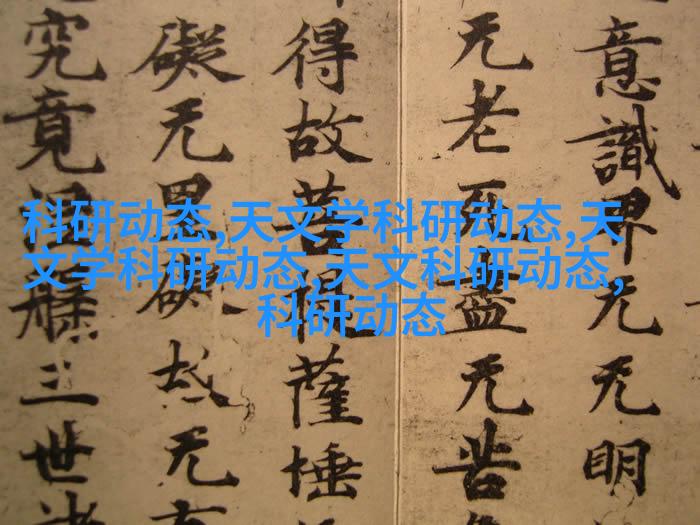 科研动态,天文学科研动态,天
文学科研动态,天文科研动态,
科研动态
意識界无无明
无老死盡无苦
得故菩提薩埵
礙无罣礙故无有
究竟涅槃三世諸